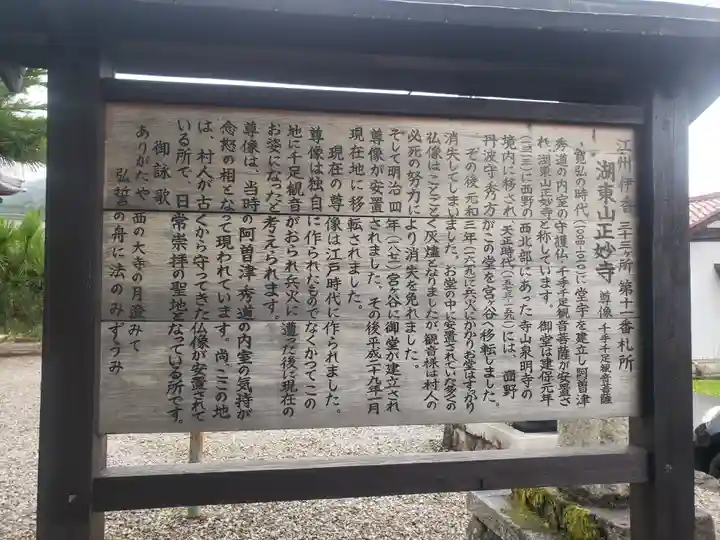 江州伊香三十三ヶ所 第十一番札所
湖東山正妙寺 尊像 千手千足観音菩薩
寛弘の時代(一〇〇四-一〇一二)に堂宇を建立し阿曽津
秀道の内室の守護仏、千手千足観音菩薩が安置さ
れ、湖東山正妙寺と称しています。御堂は建保元年
(一二一三)に西野の西北部にあった寺山泉明寺の
境内に移され、天正時代(一五七三-一五九二)には、西野
丹波守秀方がこの堂を宮ヶ谷へ移転しました。
その後元和三年(一六一九)に兵火にかかりお堂はすがり
消失してしまいました。お堂の中に安置されていた多くの
仏像はことごとく灰燼となりましたが観音様は村人の
必死の努力により消失を免れました。
そして明治四年(一八七一)宮ヶ谷に御堂が建立され
尊像が安置されました。その後平成二十九年一月
現在地に移転されました。
現在の尊像は江戸時代に作られました。
尊像は独自に作られたものでなくかつて、この
地に千足観音がおられ兵火に遭った後に現在の
お姿になったと考えられます。
尊像は、当時の阿曽津秀道の内室の気持が
念怒の相となって現われています。尚、ここの地
は、村人が古くから守ってきた仏像が安置されて
いる所で、日常崇拝の聖地となっている所です。
御詠歌
ありがたや 西の大寺の月澄みて
弘誓の舟に法のみずうみ